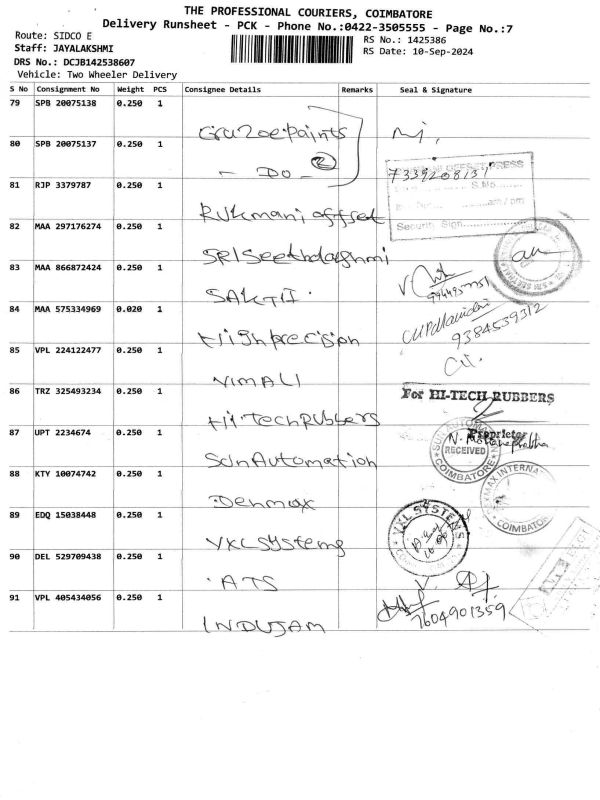 THE PROFESSIONAL COURIERS, COIMBATORE
Delivery Runsheet - PCK - Phone No.:0422-3505555 - Page No.:7
Route: SIDCO E
RS No.: 1425386
Staff: JAYALAKSHMI
RS Date: 10-Sep-2024
DRS No.: DCJB142538607
Vehicle: Two Wheeler Delivery
S No Consignment No Weight PCS Consignee Details Remarks Seal & Signature
79 SPB 20075138 0.250 1
80 SPB 20075137 0.250 1
- DO - 2
7339208131
81 RJP 3379787 0.250 1
S.No
am / pm
Rukmani offset
Security Sign
82 MAA 297176274 0.250 1
83 MAA 866872424 0.250 1
SAKTHI
84 MAA 575334969 0.020 1
9384539312
High precision
85 VPL 224122477 0.250 1
VIMALI
86 TRZ 325493234 0.250 1
For HI-TECH RUBBERS
Hi Tech Rubbers
87 UPT 2234674 0.250 1
Proprietor
SUN AUTOMA
RECEIVED
COIMBATORE
Sun Automation
88 KTY 10074742 0.250 1
MAX INTERNA
COIMBATO
Denmax
89 EDQ 15038448 0.250 1
VXL SYSTEMS
VXL Systems
90 DEL 529709438 0.250 1
ATS
91 VPL 405434056 0.250 1
7604901359
INDUJAM